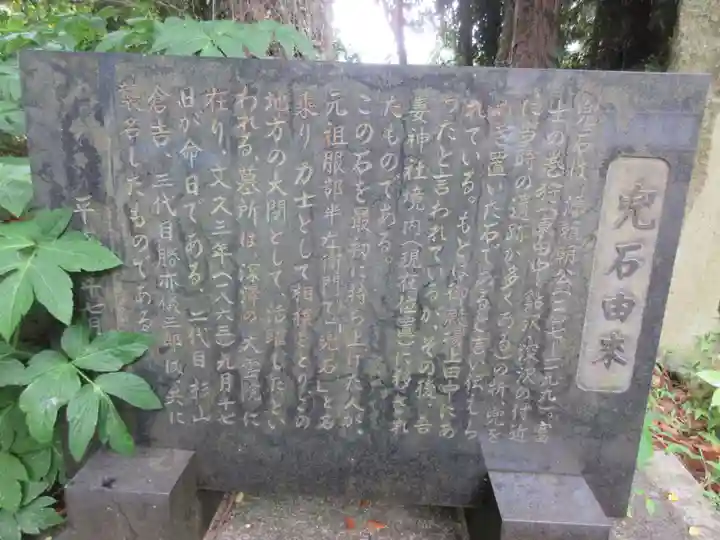 兜石由来
兜石は、源頼朝公(一一四七~一一九九)富
士の巻狩(裏田中、鮎沢、深沢の付近
に当時の遺跡が多くある)の折、兜を
置いた石であると言い伝えら
れている。もとは御殿場上田中にあ
ったと言われているが、その後、吾
妻神社境内(現在位置)に移され
たものである。
この石を最初に持ち上げた人が、
元祖服部半左衛門で「兜石」と名
乗り力士として相撲をとりこの
地方の大関として活躍したとい
われる、墓所は、深沢の大雲院に
在り、文久三年(一八六三)九月十七
日が命日である。二代目杉山
倉吉、三代目勝亦儀三郎氏、共に
襲名したものである
平 十七